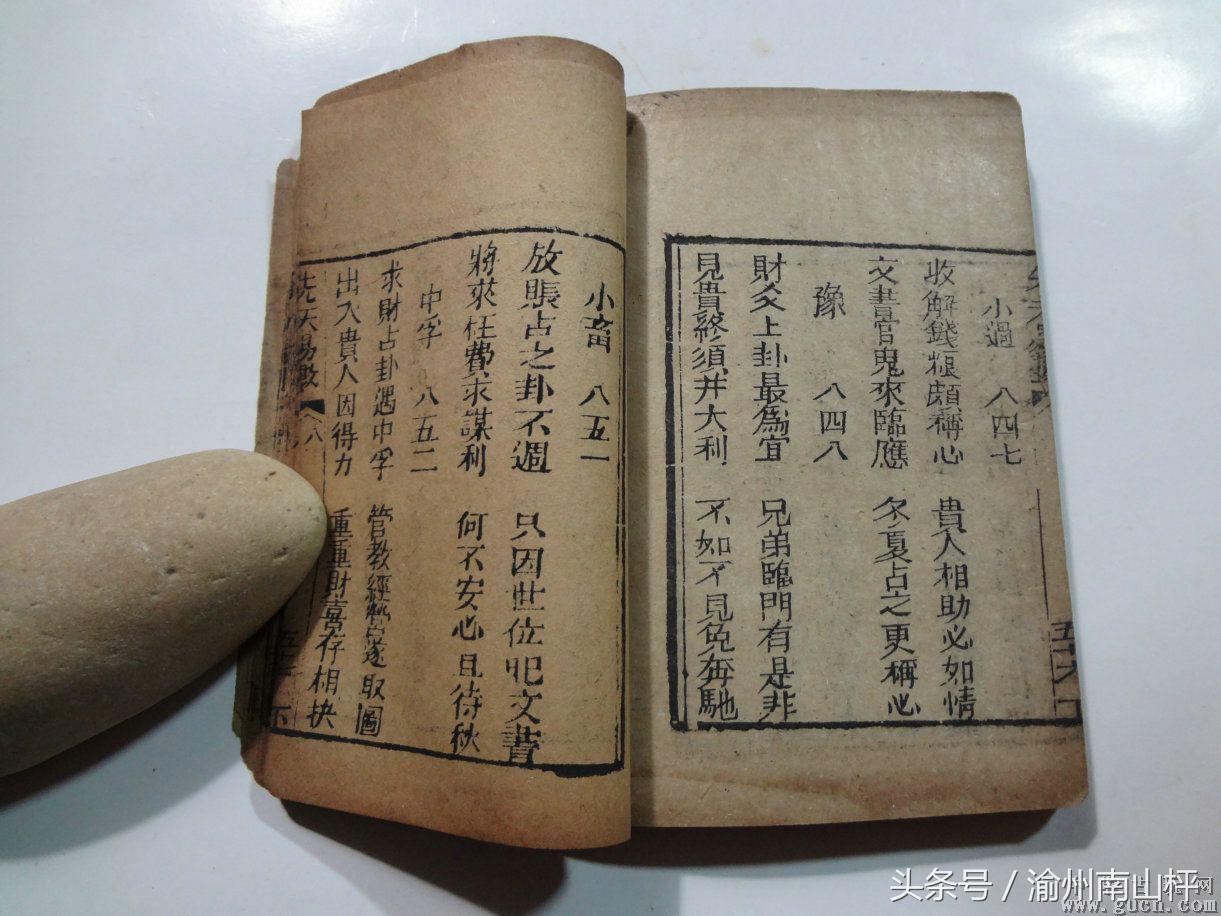 小過 八四七
收解錢糧頗稱心 貴人相助必如情
文書官鬼來臨應 冬夏占之更稱心
豫 八四八
財爻上卦最為宜 兄弟臨門有是非
見貴終須井大利 不如不見免奔馳
小畜 八五一
放賬占之卦不週 只因世位犯文書
將來枉費求謀利 何不安心且待秋
中孚 八五二
求財占卦遇中孚 管教經營遂取圖
出入貴人因得力 重重財喜存相扶
先天易數 八
下
头条号 / 渝州南山枰
www.gucn.com